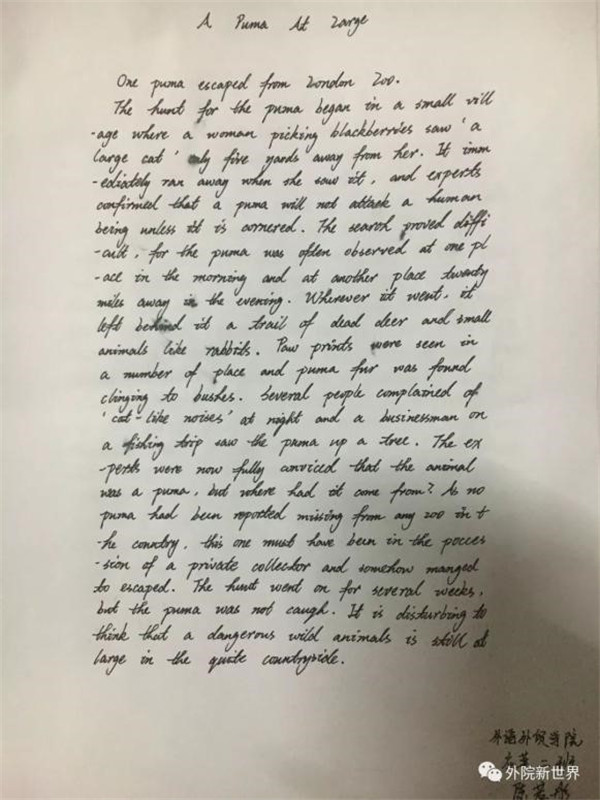 A Puma At Large
One puma escaped from London Zoo.
The hunt for the puma began in a small vill
-age where a woman picking blackberries saw 'a
large cat' only five yards away from her. It imm
-ediately ran away when she saw it, and experts
confirmed that a puma will not attack a human
being unless it is cornered. The search proved diffi
-cult, for the puma was often observed at one pl
-ace in the morning and at another place twenty
miles away in the evening. Wherever it went, it
left behind it a trail of dead deer and small
animals like rabbits. Paw prints were seen in
a number of place and puma fur was found
clinging to bushes. Several people complained of
'cat-like noises' at night and a businessman on
a fishing trip saw the puma up a tree. The ex
-perts were now fully conviced that the animal
was a puma, but where had it come from? As no
puma had been reported missing from any zoo in t
-he country, this one must have been in the pocces
-sion of a private collector and somehow manged
to escaped. The hunt went on for several weeks,
but the puma was not caugh. It is disturbing to
think that a dangerous wild animals is still at
large in the quite countryside.
外语外贸学院
外院新世界